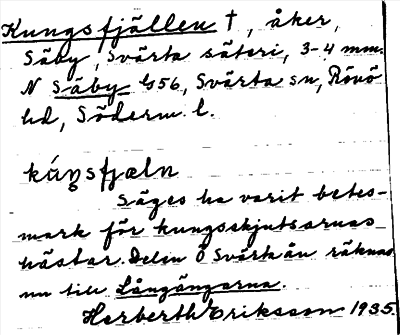 Kungsfjällen †, åker,
Säby, Svärta säteri, 3-4 mm.
N Säby 1/5 56, Svärta sn, Rönö
hd, Söderm. l.
kúŋsfjæln
Säges ha varit betes-
mark för kungsskjutsarnas
hästar. Delen Ö Svärtaån räknas
nu till Långängarna.
Herberth Eriksson 1935.